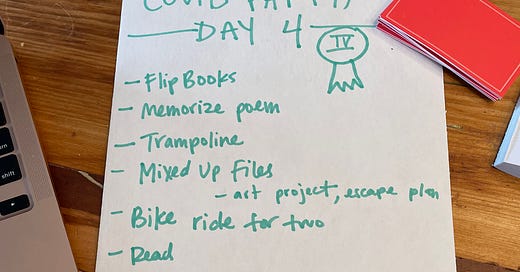 COVID
DAY 4
IV
- Flip Books
- Memorize poem
- Trampoline
- Mixed Up Files
- art project, escape plan
- Bike ride for two
- Read
shift